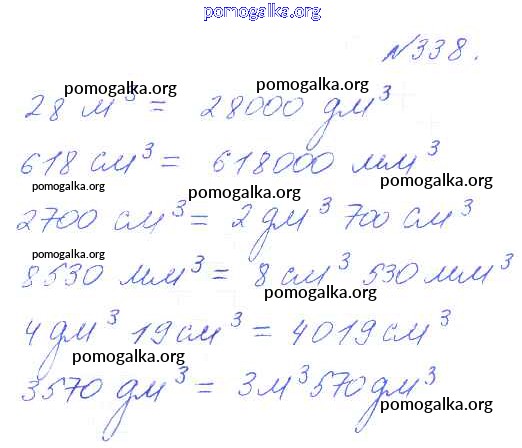 pomogalka.org
№338.
pomogalka.org pomogalka.org
28 м³ = 28000 дм³
618 см³ = 618000 мм³
pomogalka.org pomogalka.org pomogalka.org
2700 см³ = 2 дм³ 700 см³
pomogalka.org
8530 мм³ = 8 см³ 530 мм³
pomogalka.org
4 дм³ 19 см³ = 4019 см³
pomogalka.org
3570 дм³ = 3 м³ 570 дм³
pomogalka.org pomogalka.org